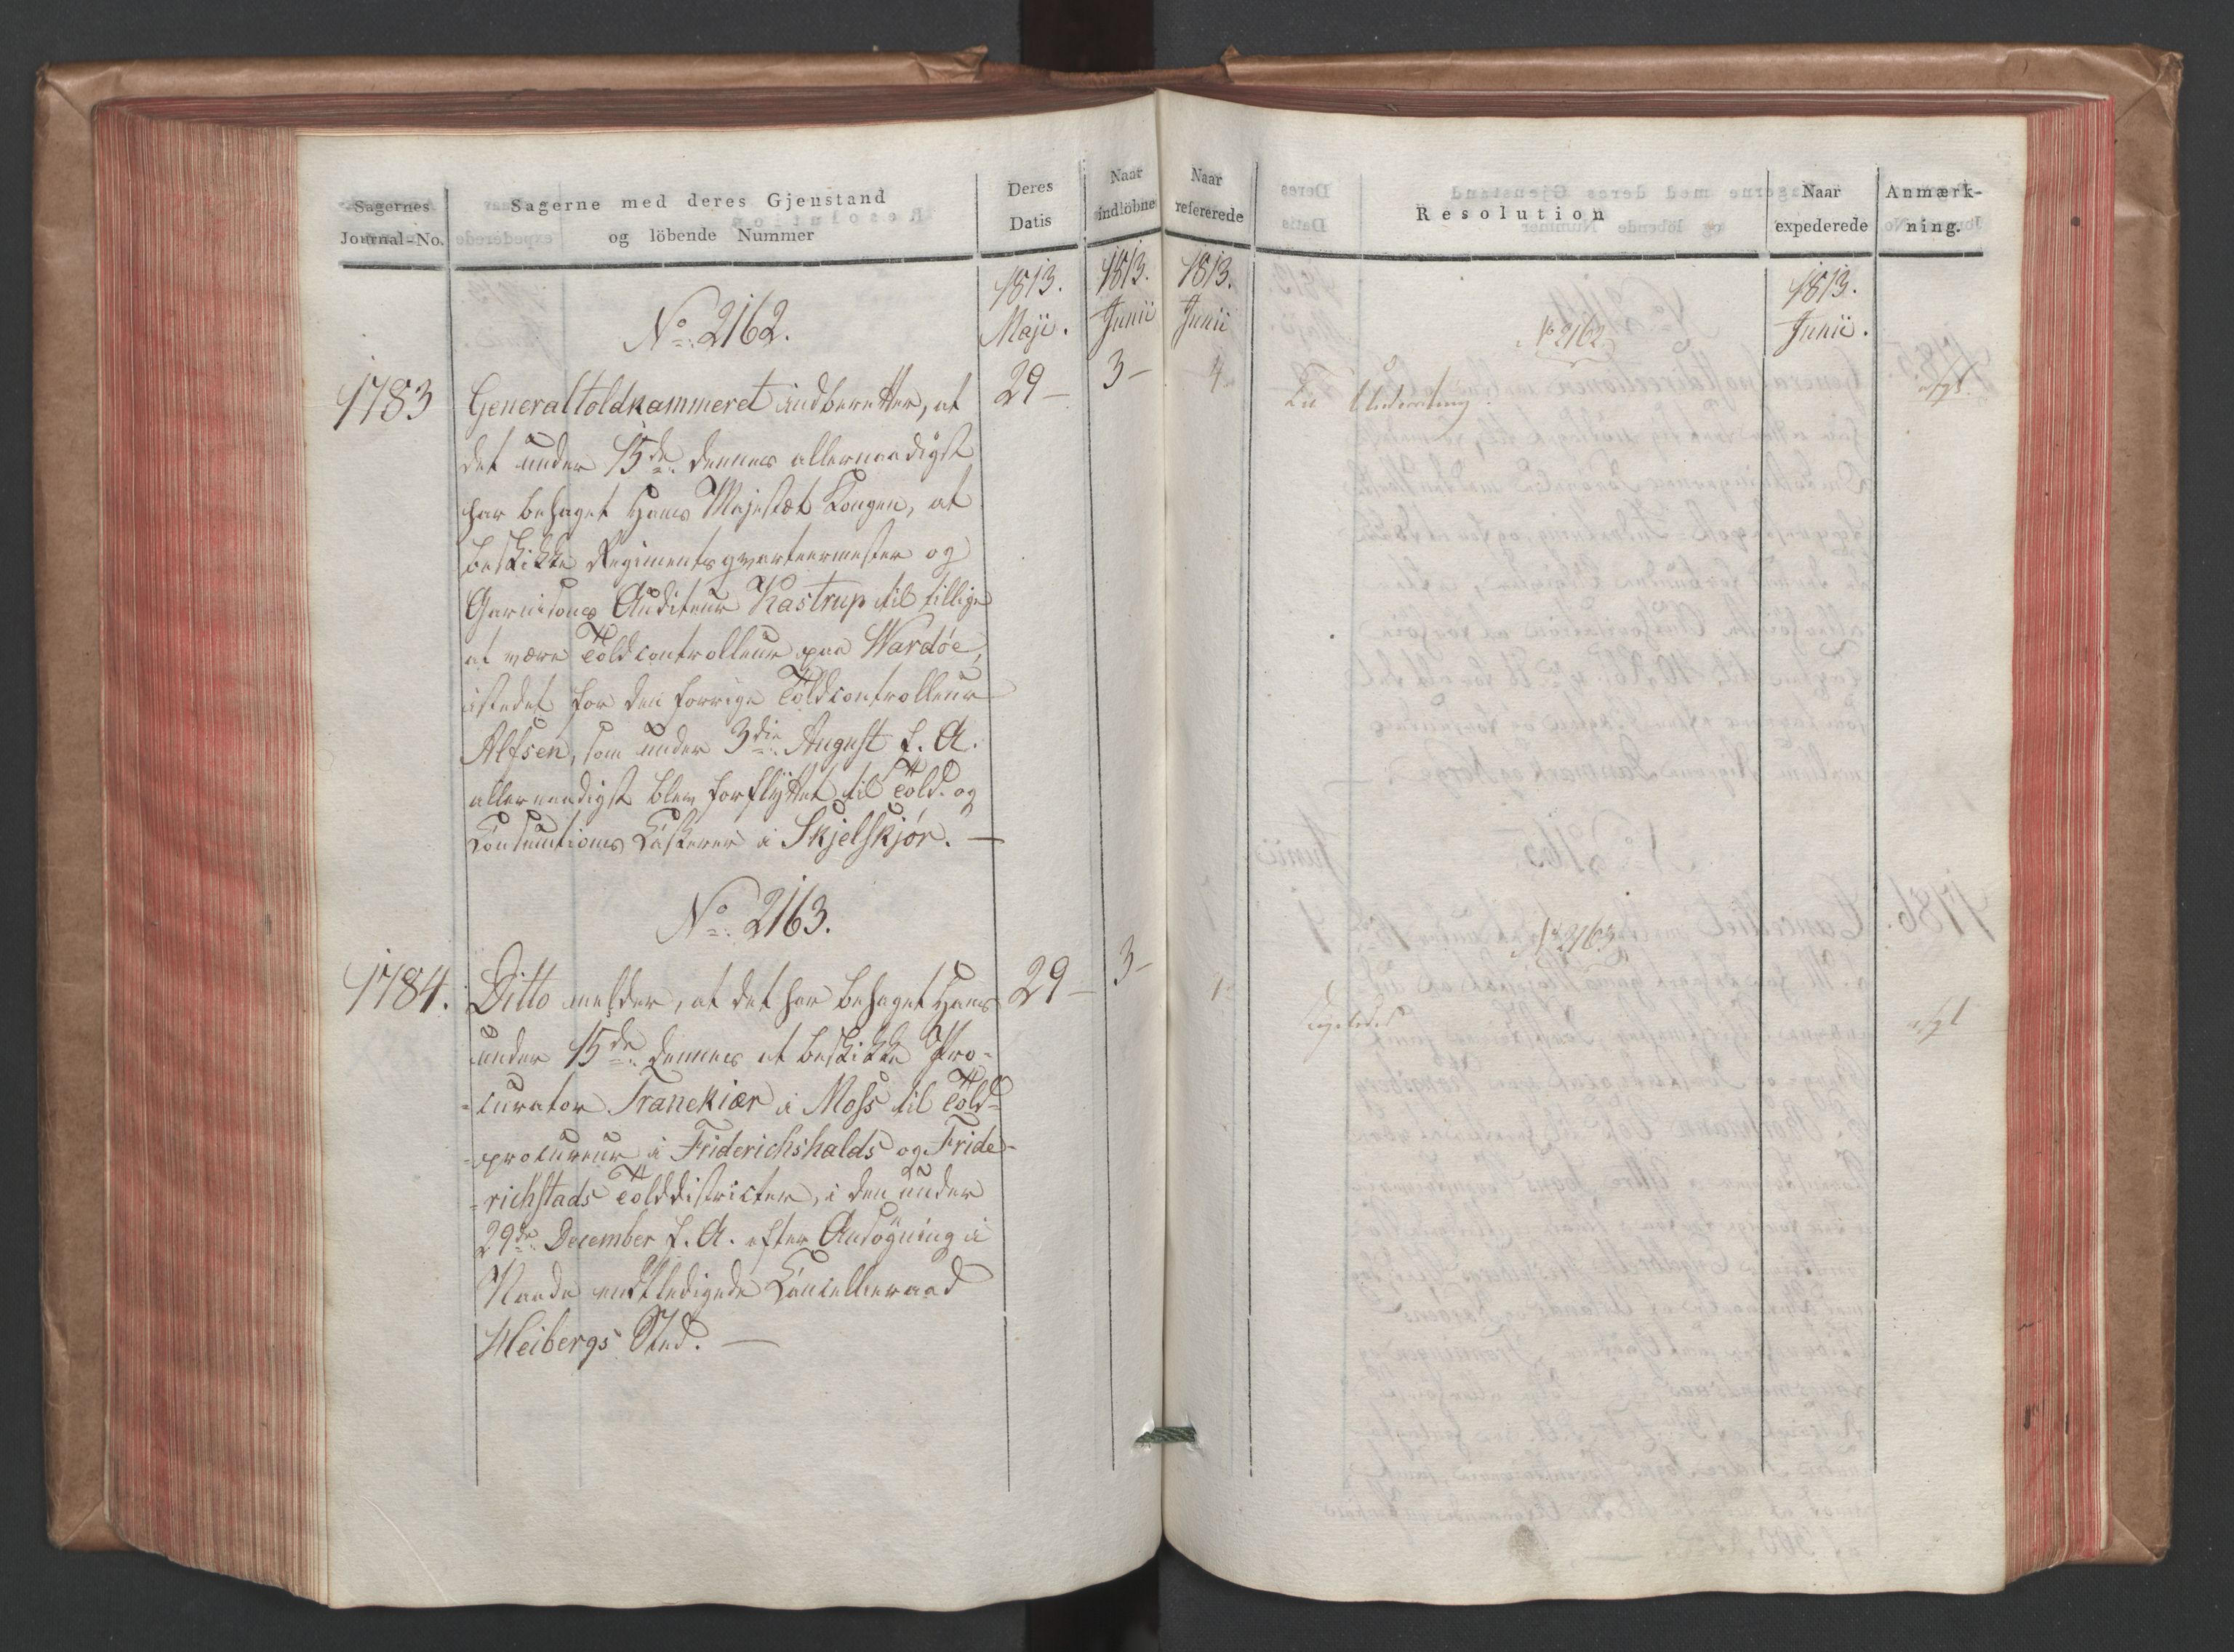 Sagernes Journal-No.
Sagerne med deres Gjenstand
og löbende Nummer
Deres
Datis
Naar
indlöbne
1813. 1813.
Majii. Junii
No. 2162.
1783 Generaltoldkammeret indberetter, at 29 – 3 –
det under 15de dennes allernaadigst
har behaget Hans Majestæt Kongen, at
beskikke Regimentsqvarteermester og
Garnisons Auditeur Kastrup til tillige
at være Toldcontrolleur paa Wardöe,
istedet for den forrige Toldcontrolleur
Alfsen, som under 3die August f. A.
allernaadigst blev forflyttet til Told- og
Consumtions Casserer i Skjelskjör. —
No. 2163.
1784. Ditto melder, at det har behaget Hans 29 – 3 –
under 15de dennes at beskikke Pro-
-curator Tranekiær i Moss til Told-
-procureur i Friderichshalds og Fride-
-richstads Tolddistricter, i den under
29de December f. A. efter Ansögning i
Naade entledigede Cancelleraad
Heibergs Sted. —
Naar
refererede
Resolution
Naar
expederede
Anmærk-
ning.
1813. 1813.
Junii Junii.
No 2162
4. Til Underretning. afgt.
No 2163
Ligeledes afgt